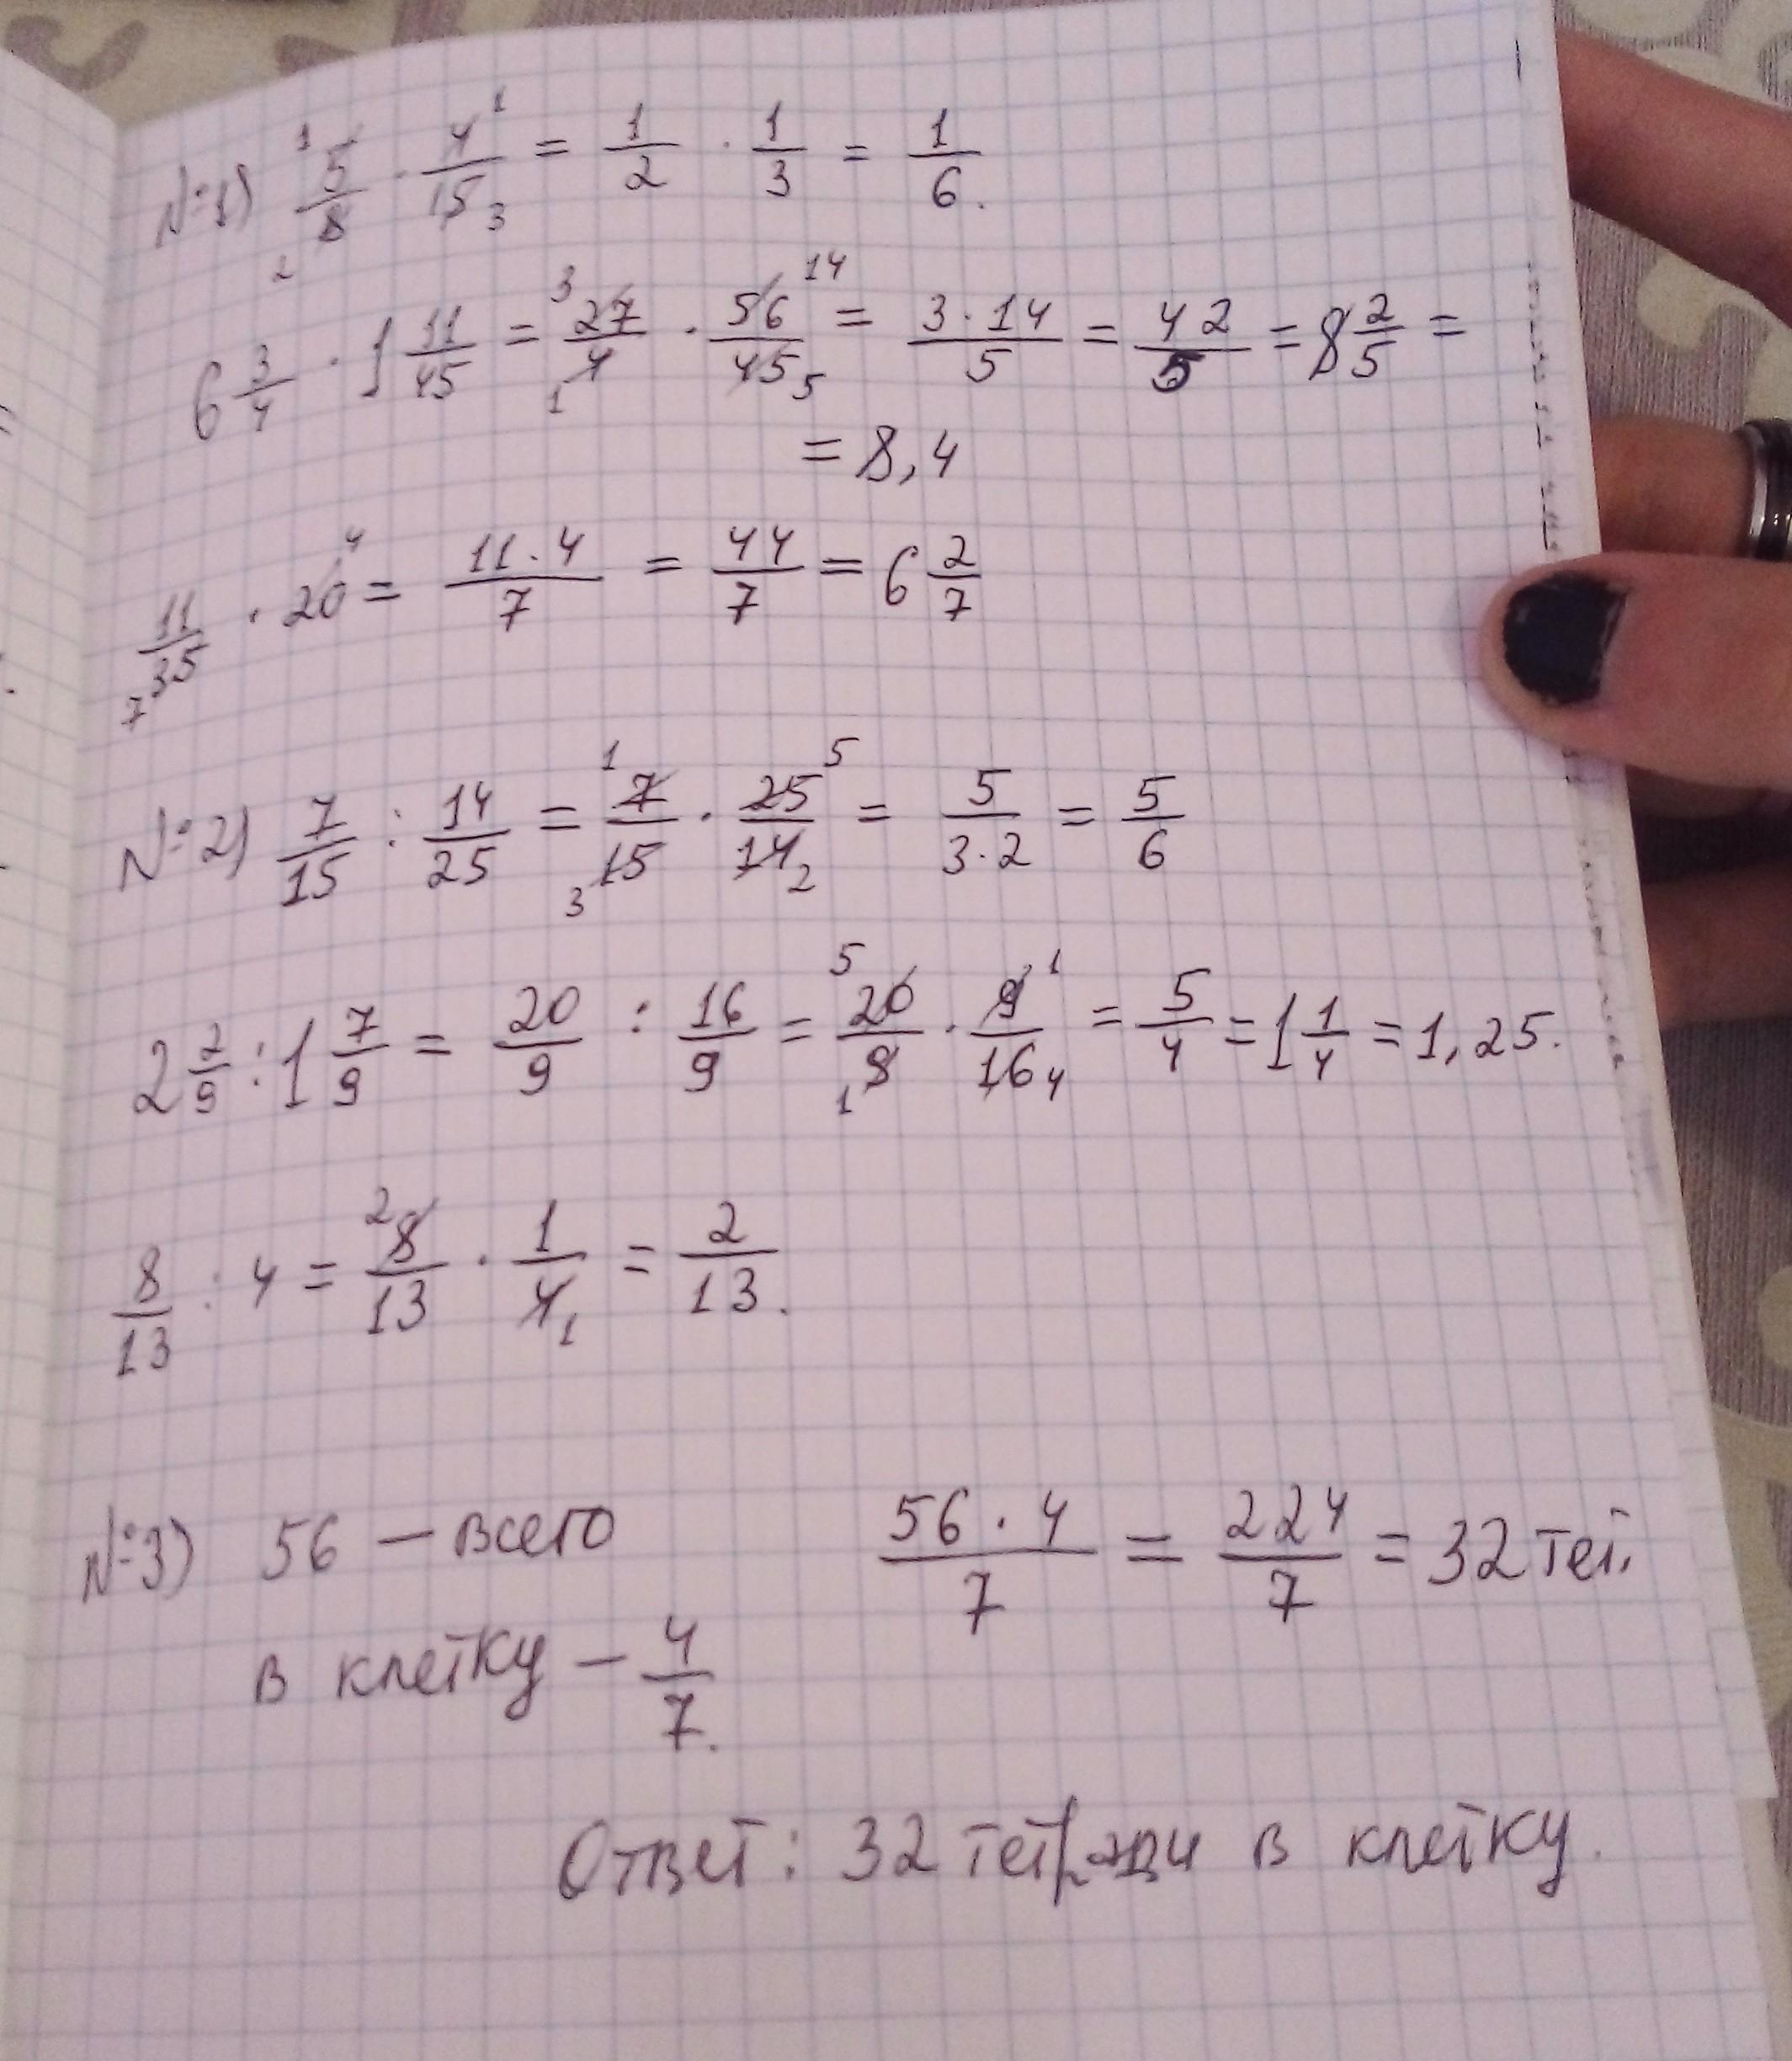 №1) 5/8 · 4/15 = 1/2 · 1/3 = 1/6.
6 3/4 · 1 11/45 = 27/4 · 56/45 = 3·14/5 = 42/5 = 8 2/5 =
= 8,4
11/35 · 20 = 11·4/7 = 44/7 = 6 2/7
№2) 7/15 : 14/25 = 7/15 · 25/14 = 5/3·2 = 5/6
2 2/9 : 1 7/9 = 20/9 : 16/9 = 20/9 · 9/16 = 5/4 = 1 1/4 = 1,25.
8/13 : 4 = 8/13 · 1/4 = 2/13.
№3) 56 – всего 56·4/7 = 224/7 = 32 тет.
в клетку – 4/7.
Ответ: 32 тетради в клетку.